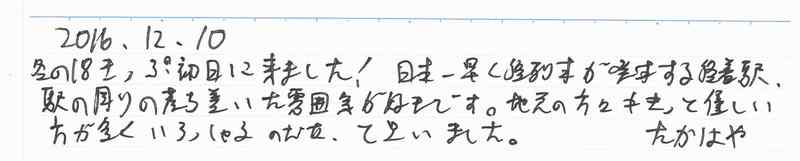 2016.12.10
冬の18キっぷ初日に来ました! 日本一早く終列車が発車する終着駅、
駅の周りの落ち着いた雰囲気が好きです。地元の方々もきっと優しい
方が多くいらっしゃるのだな、て思いました。 たかはや